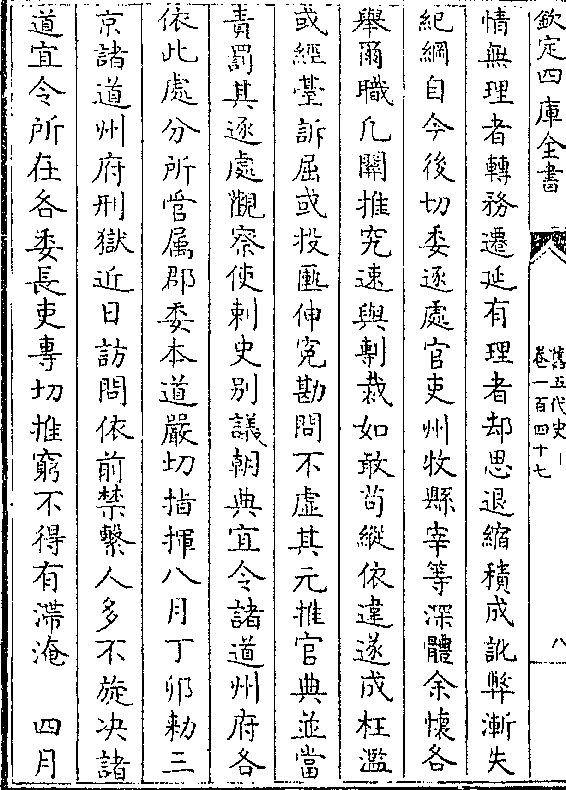 欽定四庫全書
舊五代史
卷一百四十七
八
情無理者轉務遷延有理者却思退縮積成訛弊漸失
紀綱自今後切委逐處官吏州牧縣宰等深體余懷各
舉爾職凡關推究速與剸裁如敢茍縱依違遂成枉濫
或經臺訴屈或投匭伸寃勘問不虛其元推官典並當
責罰其逐處觀察使刺史别議朝典宜令諸道州府各
依此處分所管属郡委本道嚴切指揮八月丁卯勅三
京諸道州府刑獄近日訪問依前禁繫人多不旋决諸
道宜令所在各委長吏專切推窮不得有滯淹　四月